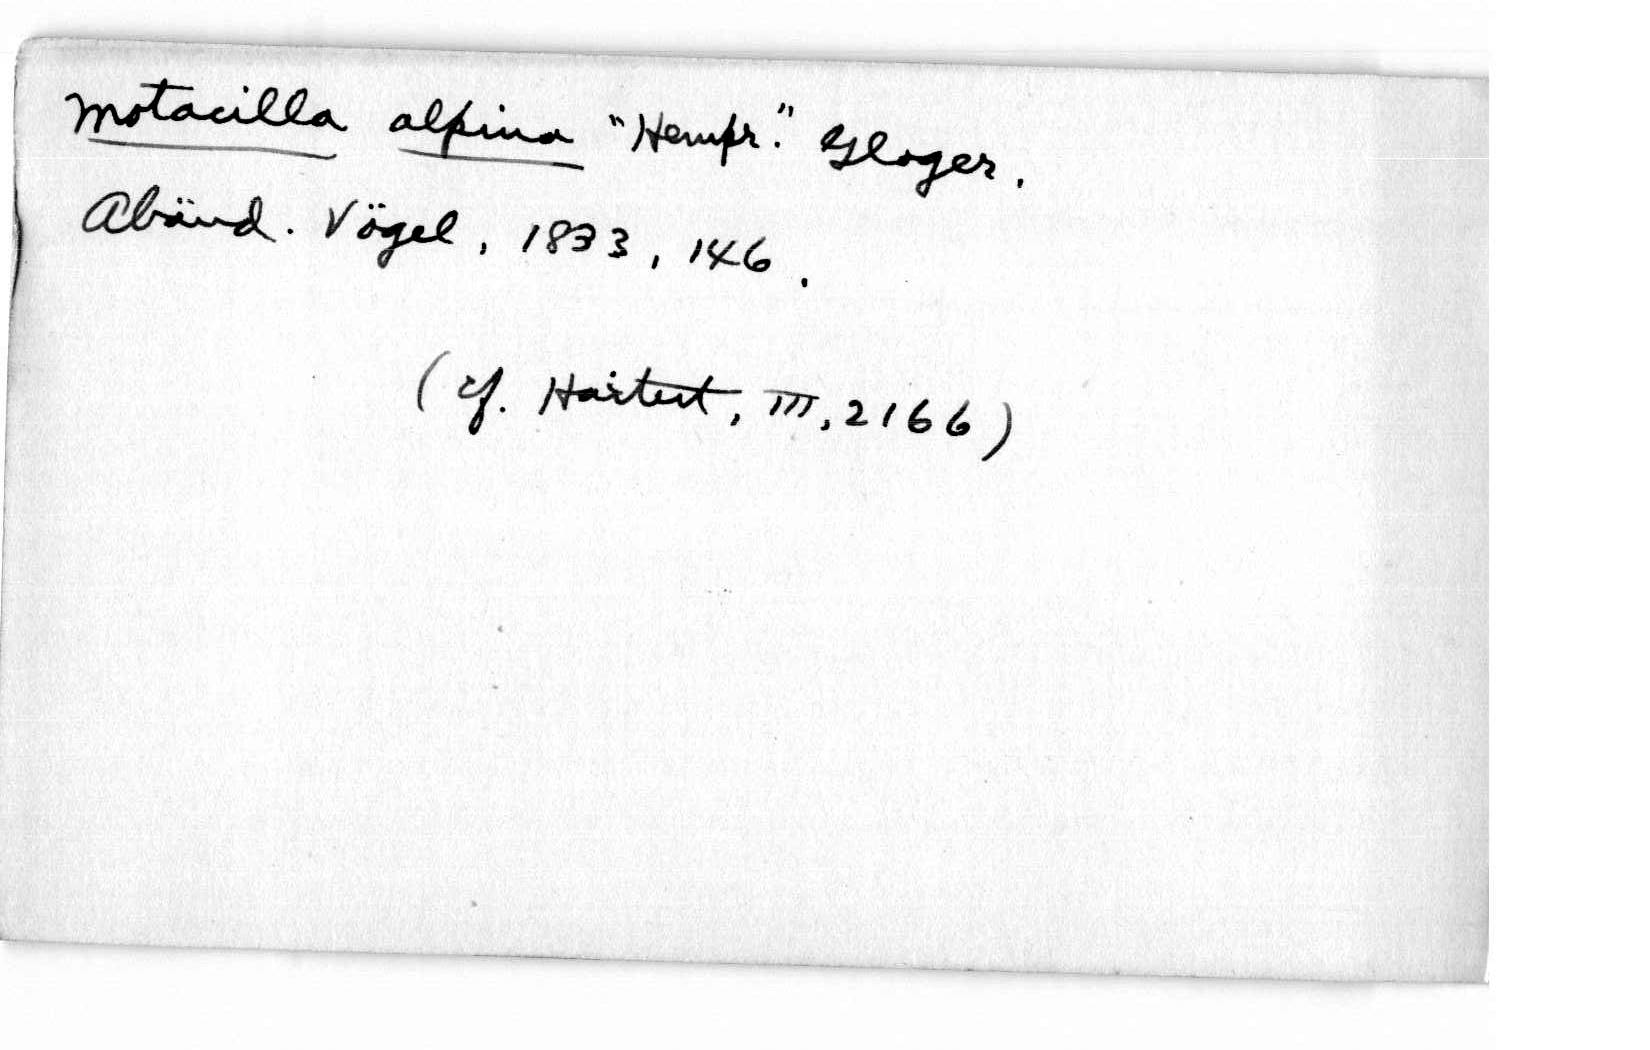 Motacilla alpina "Hempr." Gloger.
Abänd. Vögel, 1833, 146.
(cf. Hartert, III, 2166)